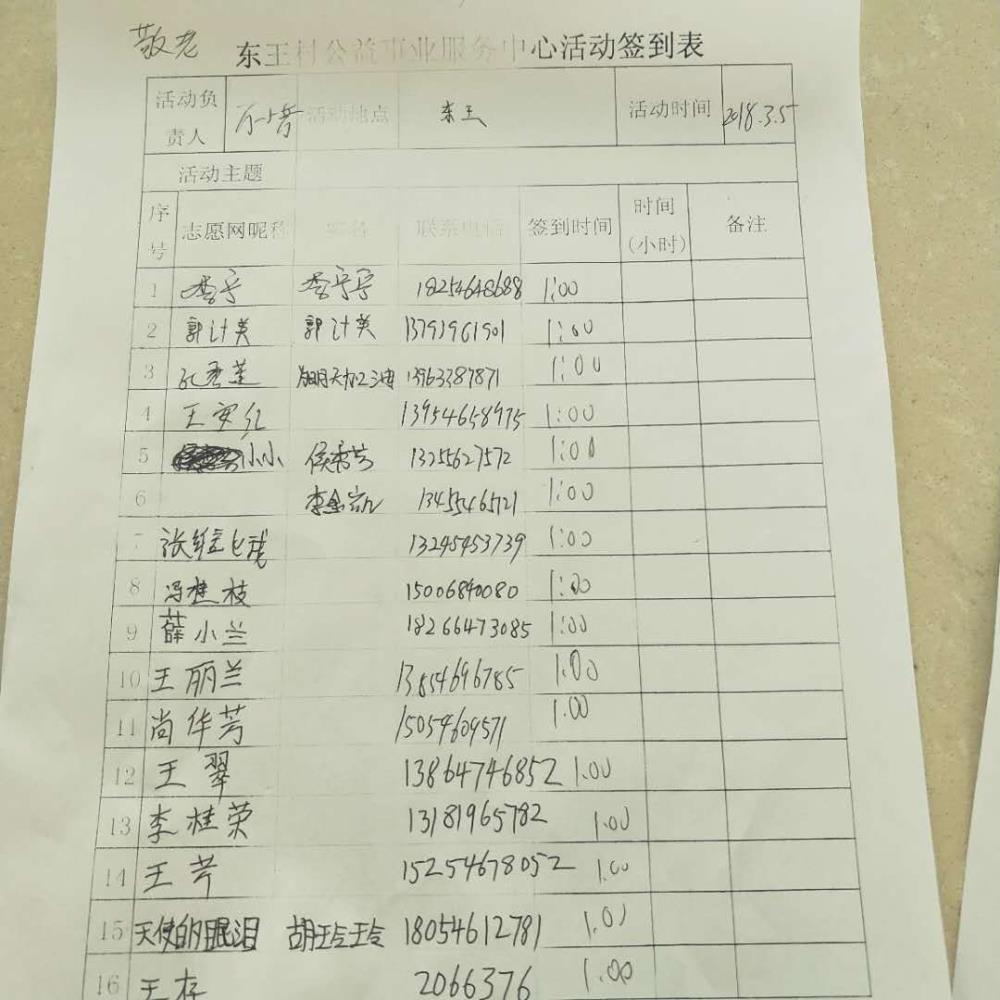 敬老 东王村公益事业服务中心活动签到表
活动负责人 活动地点 东王 活动时间 2018.3.5
活动主题
序号 志愿网昵称 姓名 联系电话 签到时间 时间(小时) 备注
1 李宁 李宁宁 18254648688 1:00
2 郭计美 郭计美 13791961901 1:00
3 孔秀莲 明天加油 13963387871 1:00
4 王安红 13954658975 1:00
5 小小 侯秀芳 13255627572 1:00
6 李金凯 13455465721 1:00
7 13245453739 1:00
8 冯桂枝 15006840080 1:00
9 薛小兰 18266473085 1:00
10 王丽兰 13854696785 1.00
11 尚华芳 15054609571 1.00
12 王翠 13864746852 1.00
13 李桂荣 13181965782 1.00
14 王芹 15254678052 1.00
15 天使的眼泪 胡玲玲 18054612781 1.01
16 王存 2066376 1.00